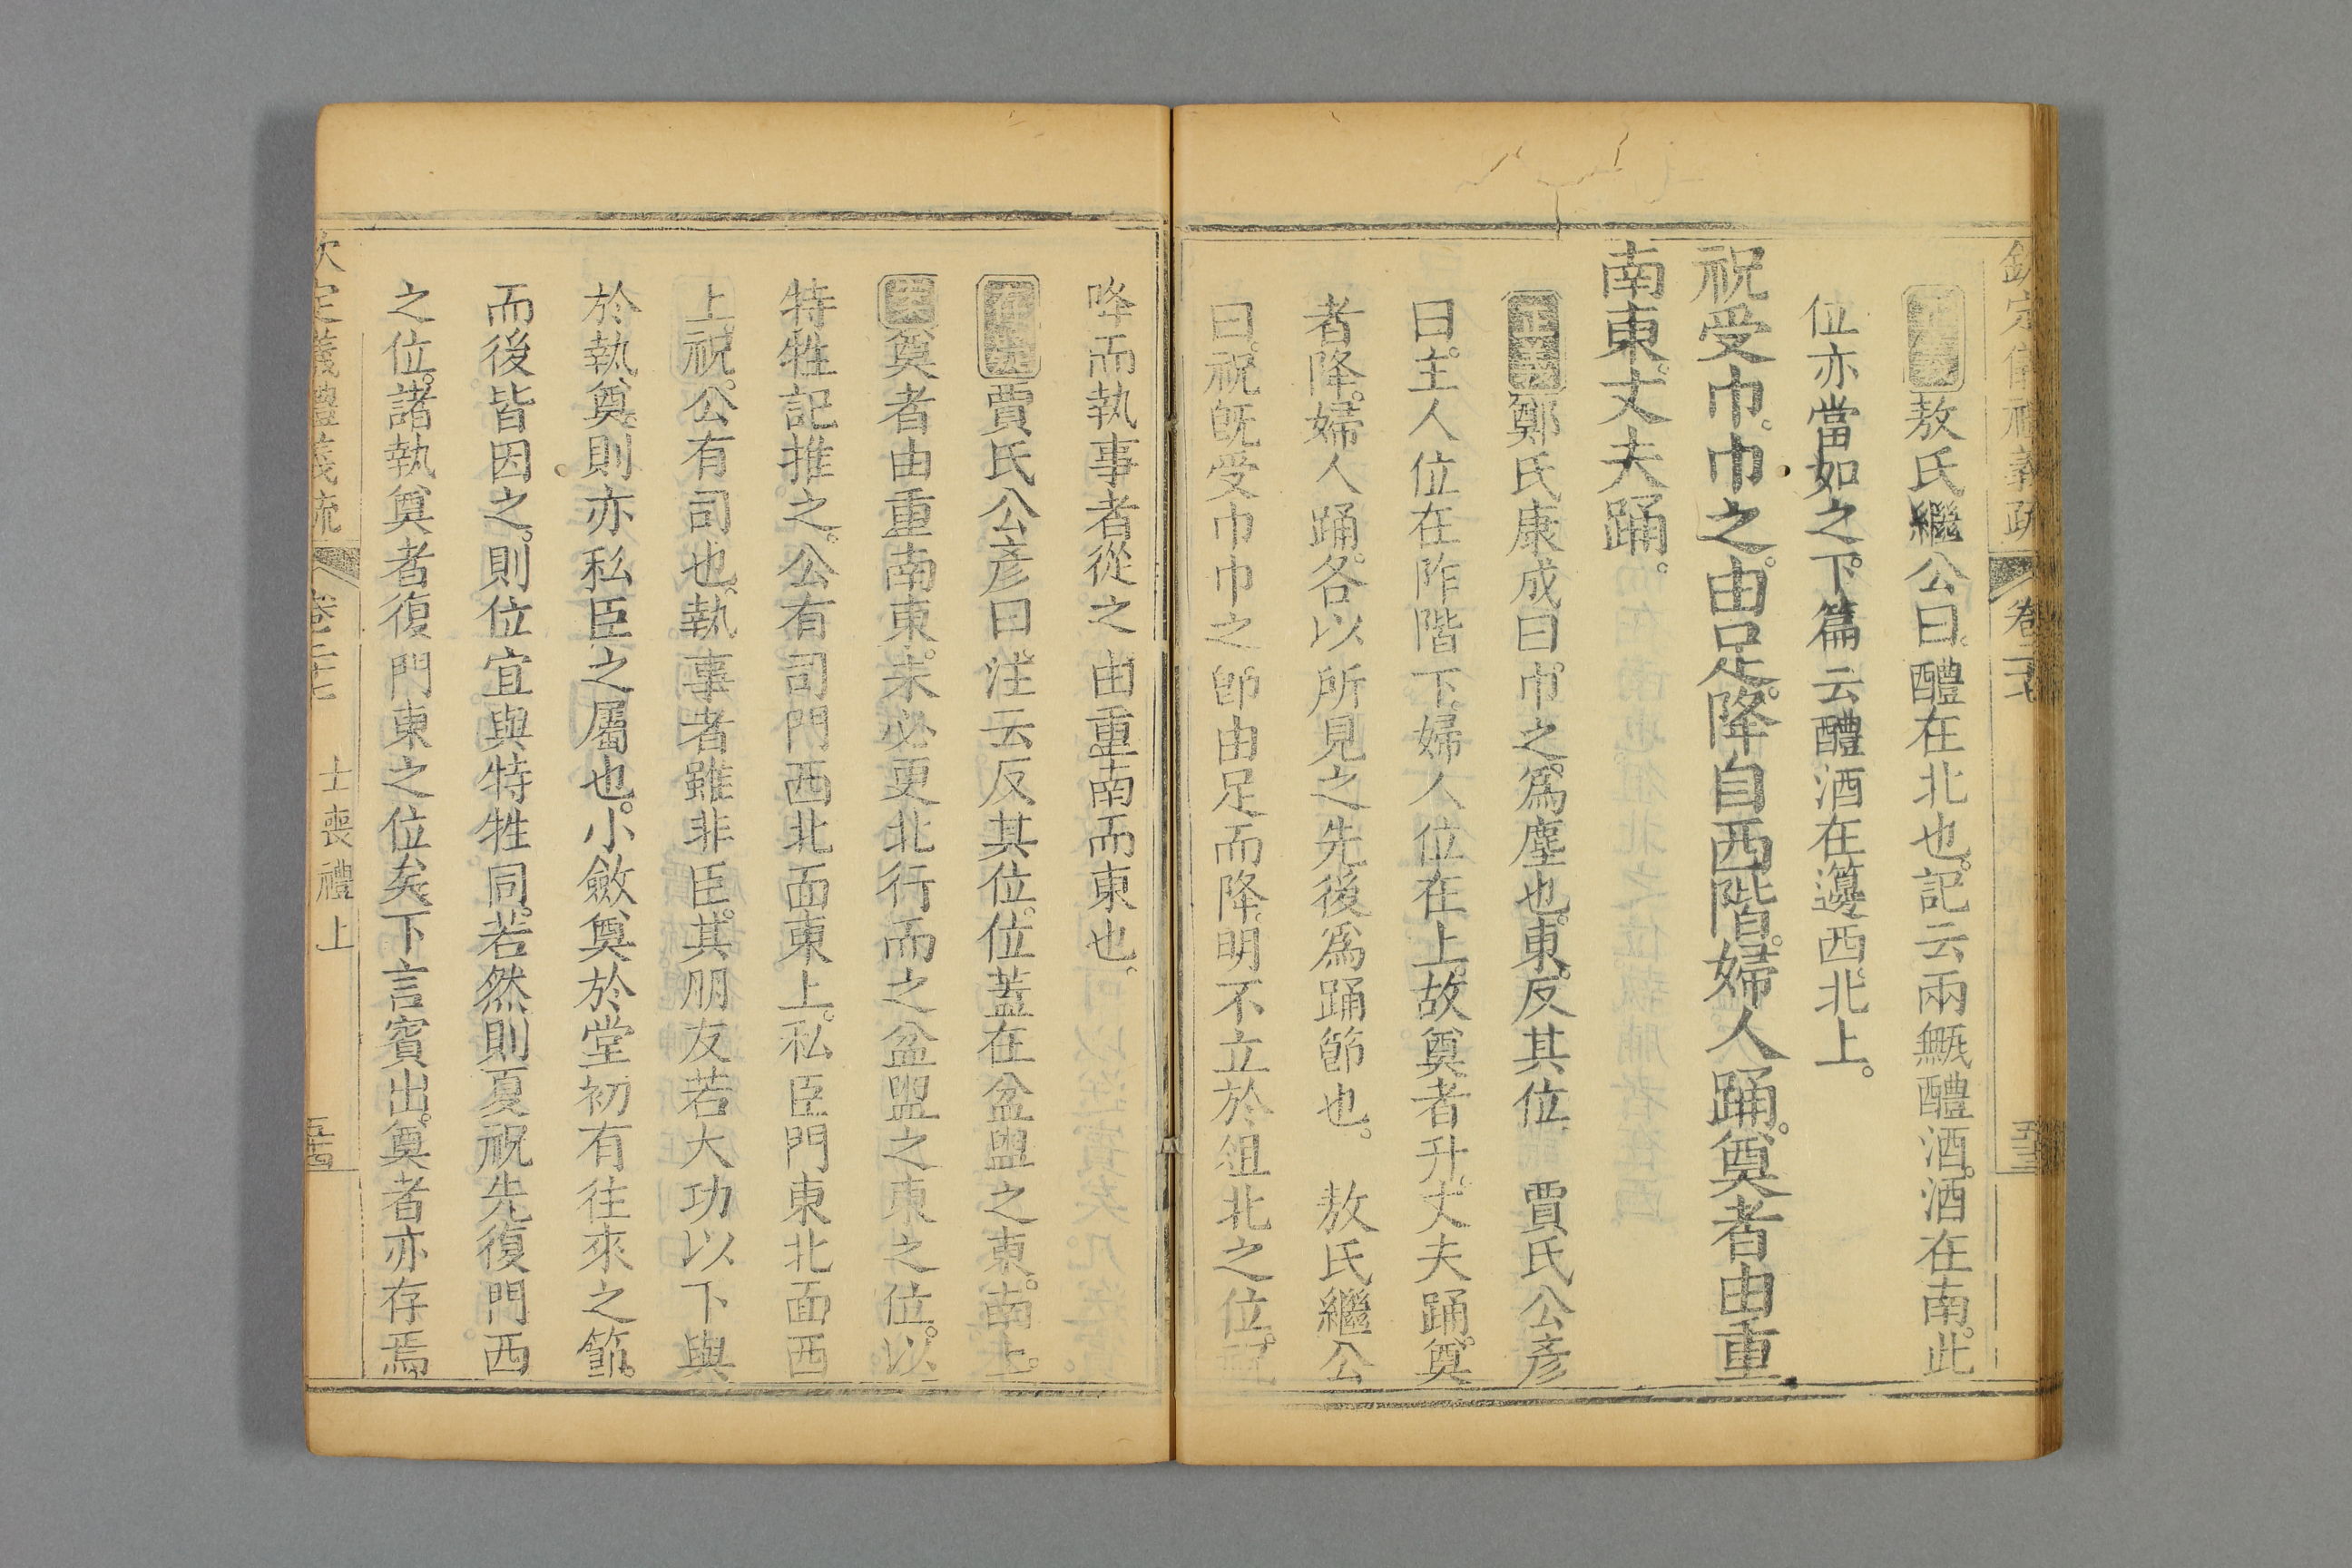 欽定儀禮義疏 卷二十七 五十三
正義敖氏繼公曰。醴在北也。記云兩甒醴酒。酒在南。此
位亦當如之。下篇云醴酒在籩西。北上。
祝受巾。巾之。由足。降自西階。婦人踊。奠者由重
南東。丈夫踊。
正義鄭氏康成曰。巾之。爲塵也。東。反其位 賈氏公彥
曰。主人位在阼階下。婦人位在上。故奠者升。丈夫踊。奠
者降。婦人踊。各以所見之先後爲踊節也。 敖氏繼公
曰。祝旣受巾巾之。卽由足而降。明不立於俎北之位。
降而執事者從之。由重南而東也。
存疑賈氏公彥曰。注云反其位。位蓋在盆盥之東。南上。
案奠者由重南東。未必更北行而之盆盥之東之位。以
特牲記推之。公有司門西北面東上。私臣門東北面西
上。祝。公有司也。執事者雖非臣。其朋友若大功以下與
於執奠。則亦私臣之屬也。小斂奠於堂初有往來之節。
而後皆因之。則位宜與特牲同。若然則夏祝先復門西
之位。諸執奠者復門東之位矣。下言賓出。奠者亦存焉
欽定儀禮義疏 卷二十七 士喪禮上 五十四